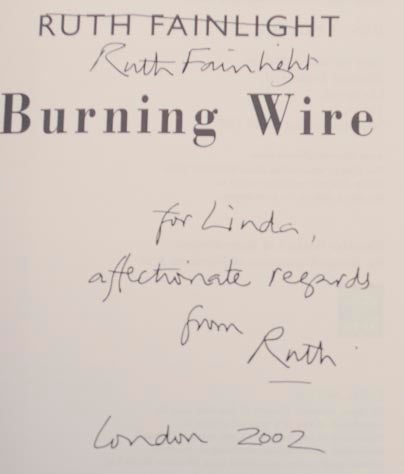 RUTH FAINLIGHT
Ruth Fainlight
Burning Wire
for Linda,
affectionate regards
from
Ruth
London 2002